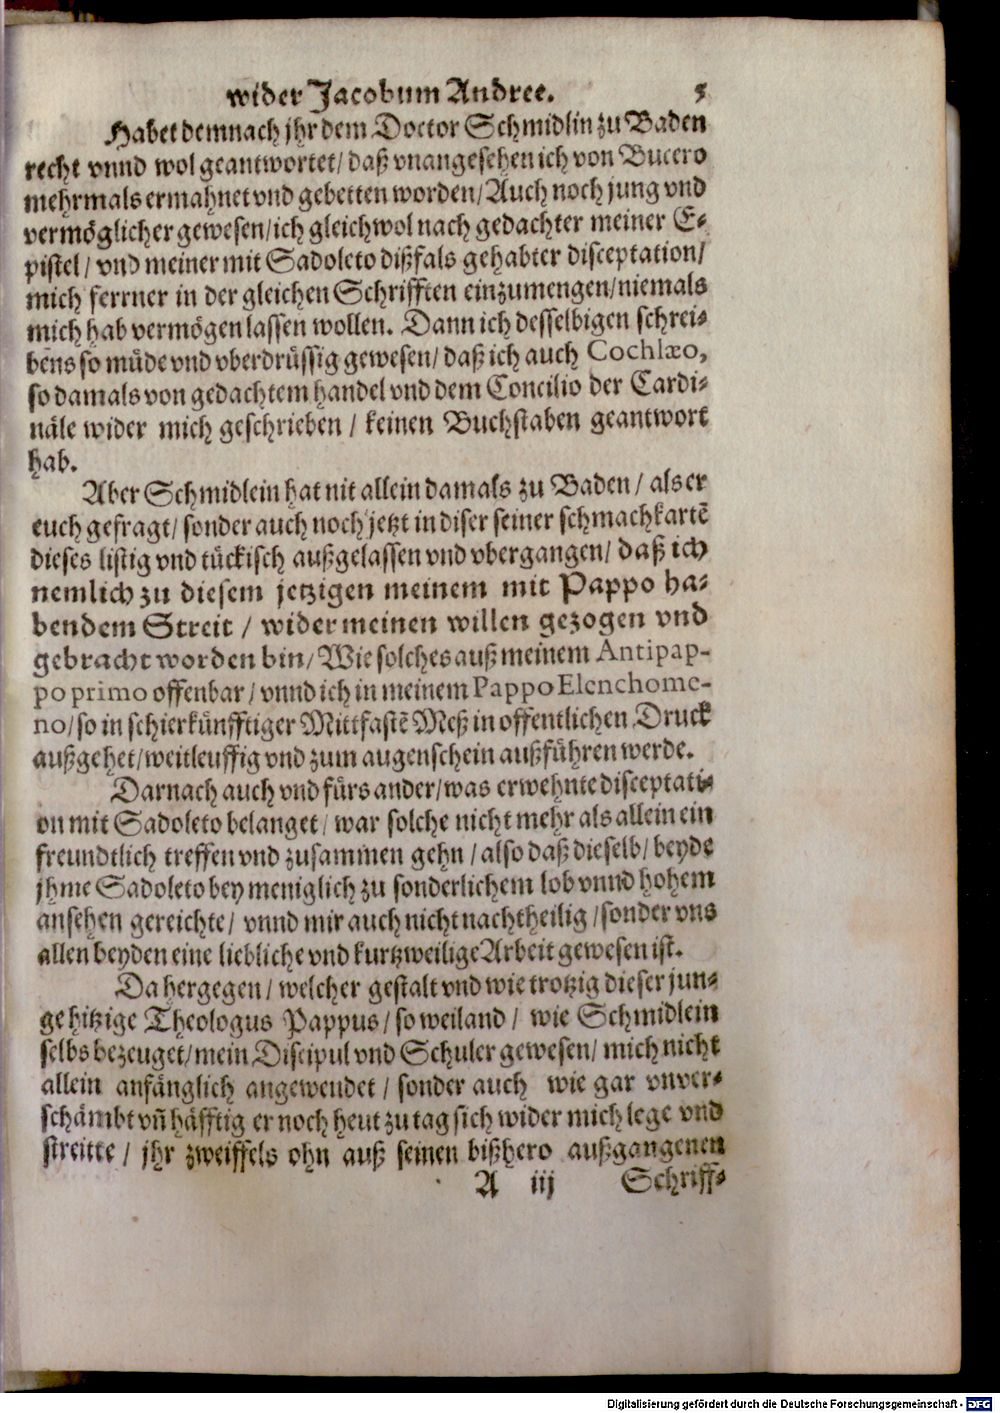 wider Jacobum Andree. 5
Habet demnach jhr dem Doctor Schmidlin zu Baden
recht vnnd wol geantwortet/ daß vnangesehen ich von Bucero
mehrmals ermahnet vnd gebetten worden/ Auch noch jung vnd
vermöglicher gewesen/ ich gleichwol nach gedachter meiner E⸗
pistel/ vnd meiner mit Sadoleto dißfals gehabter disceptation/
mich ferrner in der gleichen Schrifften einzumengen/ niemals
mich hab vermögen lassen wollen. Dann ich desselbigen schrei⸗
bens so müde vnd vberdrüssig gewesen/ daß ich auch Cochlæo,
so damals von gedachtem handel vnd dem Concilio der Cardi⸗
näle wider mich geschrieben/ keinen Buchstaben geantwort
hab.
Aber Schmidlein hat nit allein damals zu Baden/ als er
euch gefragt/ sonder auch noch jetzt in diser seiner schmachkartē
dieses listig vnd tückisch außgelassen vnd vbergangen/ daß ich
nemlich zu diesem jetzigen meinem mit Pappo ha⸗
bendem Streit/ wider meinen willen gezogen vnd
gebracht worden bin/ Wie solches auß meinem Antipap-
po primo offenbar/ vnnd ich in meinem Pappo Elenchome-
no/ so in schierkünfftiger Mittfastē Meß in offentlichen Druck
außgehet/ weitleuffig vnd zum augenschein außführen werde.
Darnach auch vnd fürs ander/ was erwehnte disceptati⸗
on mit Sadoleto belanget/ war solche nicht mehr als allein ein
freundtlich treffen vnd zusammen gehn/ also daß dieselb/ beyde
jhme Sadoleto bey meniglich zu sonderlichem lob vnnd hohem
ansehen gereichte/ vnnd mir auch nicht nachtheilig/ sonder vns
allen beyden eine liebliche vnd kurtzweilige Arbeit gewesen ist.
Da hergegen/ welcher gestalt vnd wie trotzig dieser jun⸗
ge hitzige Theologus Pappus/ so weiland/ wie Schmidlein
selbs bezeuget/ mein Discipul vnd Schuler gewesen/ mich nicht
allein anfänglich angewendet/ sonder auch wie gar vnver⸗
schämbt vñ häfftig er noch heut zu tag sich wider mich lege vnd
streitte/ jhr zweiffels ohn auß seinen bißhero außgangenen
A iij Schriff⸗
Digitalisierung gefördert durch die Deutsche Forschungsgemeinschaft - DFG